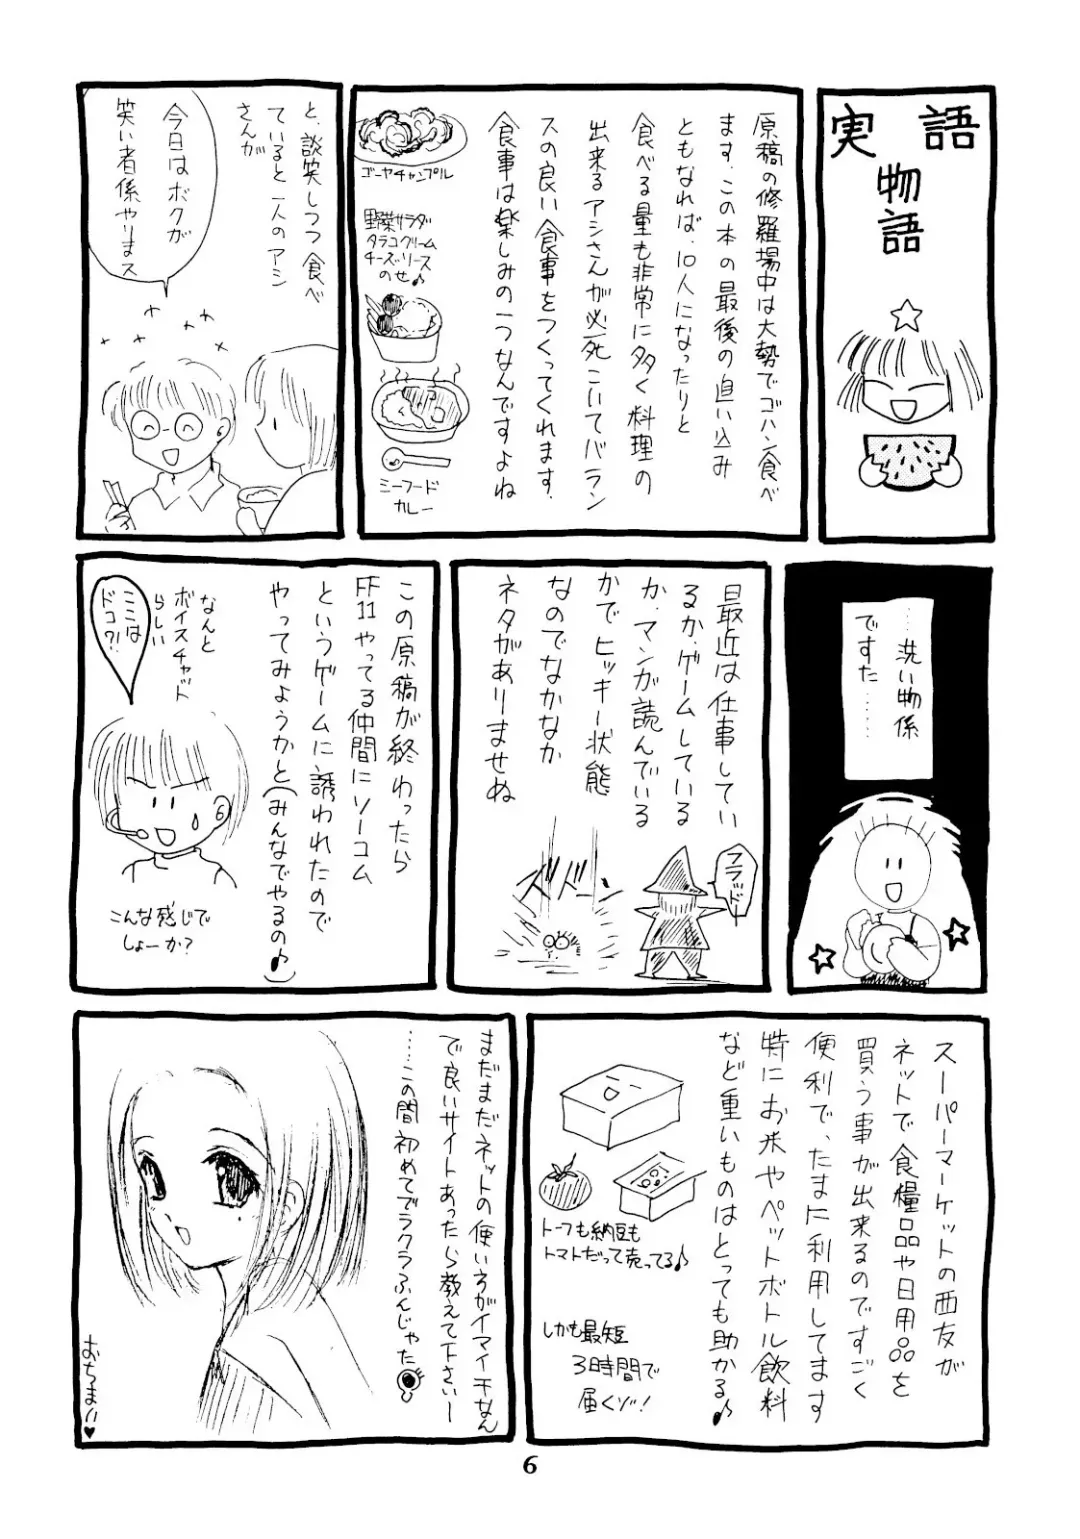 実語
物語
原稿の修羅場中は大勢でゴハン食べ
ます。この本の最後の追い込み
ともなれば、10人になったりと
食べる量も非常に多く料理の
出来るアシさんが必死こいてバラン
スの良い食事をつくってくれます。
食事は楽しみの一つなんですよね
ゴーヤチャンプル
野菜サラダ
タラコクリーム
チーズソース
のせ♪
シーフード
カレー
と、談笑しつつ食べ
ていると一人のアシ
さんが
今日はボクが
笑い者係やりまス
…洗い物係
ですた……
最近は仕事してい
るか、ゲームしている
か、マンガ読んでいる
かでヒッキー状態
なのでなかなか
ネタがありませぬ
フラッドー
ズドドン
この原稿が終わったら
FF11やってる仲間にソーコム
というゲームに誘われたので
やってみようかと(みんなでやるの♪)
なんと
ボイスチャット
らしい
ここは
ドコ?!
こんな感じで
しょーか?
スーパーマーケットの西友が
ネットで食糧品や日用品を
買う事が出来るのですごく
便利で、たまに利用してます
特にお米やペットボトル飲料
など重いものはとっても助かる♪
トーフも納豆も
トマトだって売ってる♪
しかも最短
3時間で
届くゾ!
まだまだネットの使い方がイマイチなん
で良いサイトあったら教えて下さいー
……この間初めてブラクラふんじゃった
おちまい♥
6